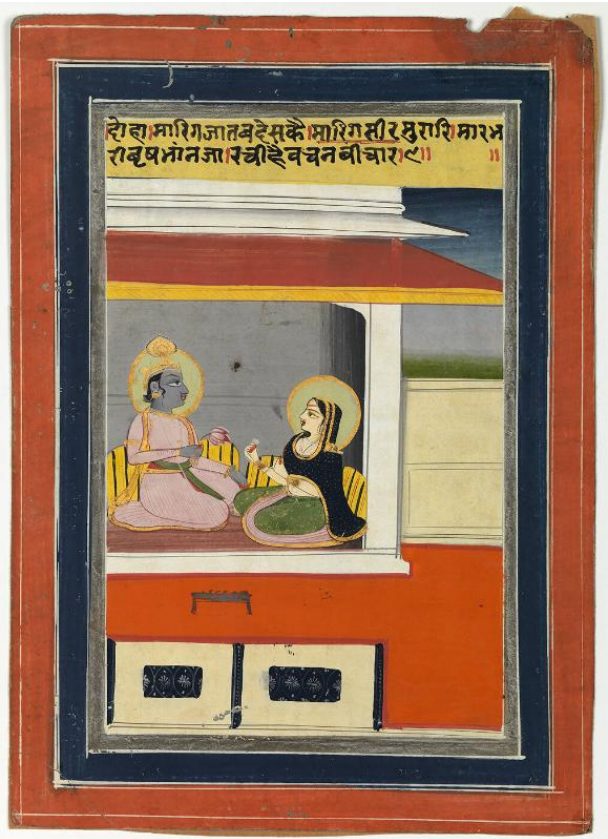 दोहा।मारिगजातबहेसकै।मारिगसीरमुरारि।मारभ
राबृषभांनजा।रचीहैवचनबीचार।९॥ ॥